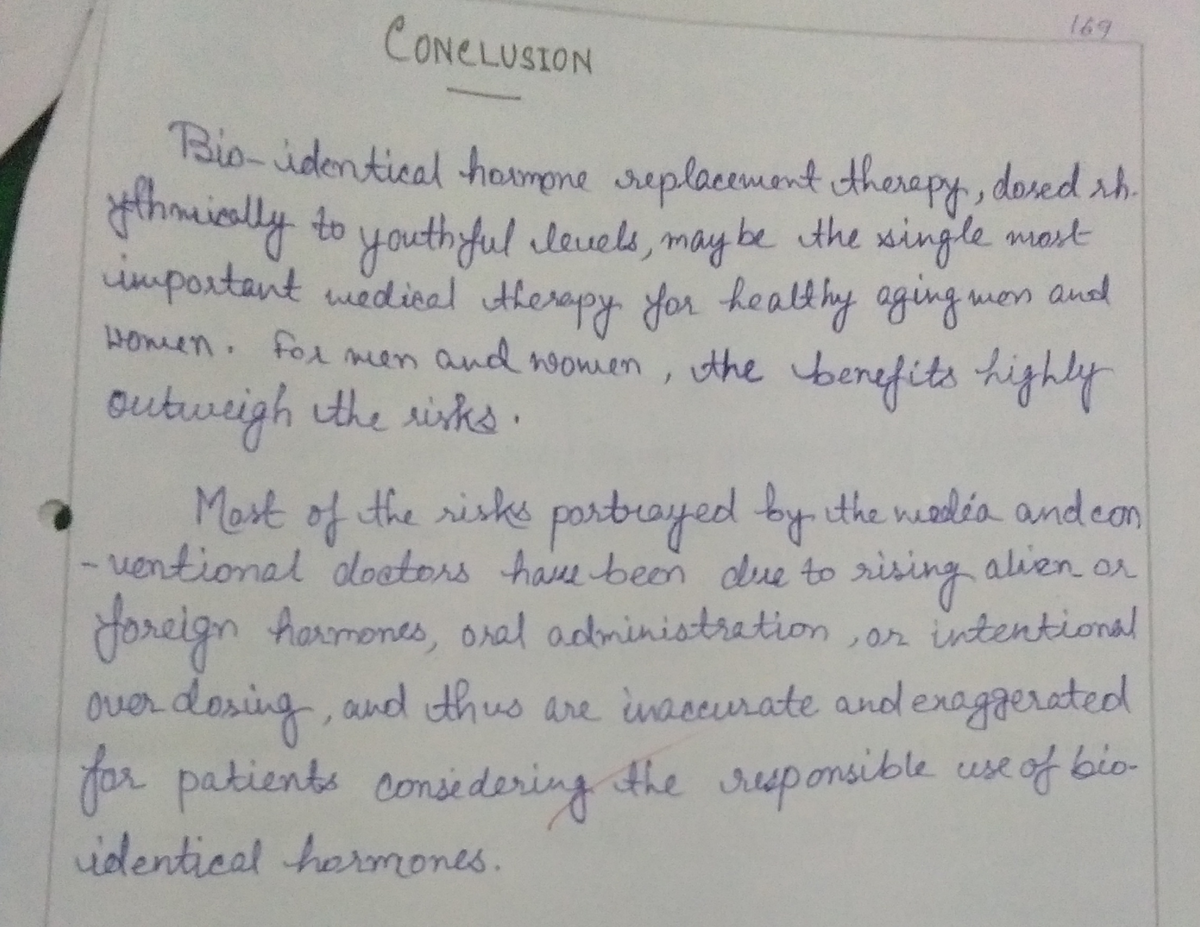 169
CONCLUSION
Bio-identical hormone replacement therapy, dosed rh-
ythmically to youthful levels, may be the single most
important medical therapy for healthy aging men and
women. For men and women, the benefits highly
outweigh the risks.
Most of the risks portrayed by the media and con
-ventional doctors have been due to rising alien or
foreign hormones, oral administration, or intentional
over dosing, and thus are inaccurate and exaggerated
for patients considering the responsible use of bio-
identical hormones.